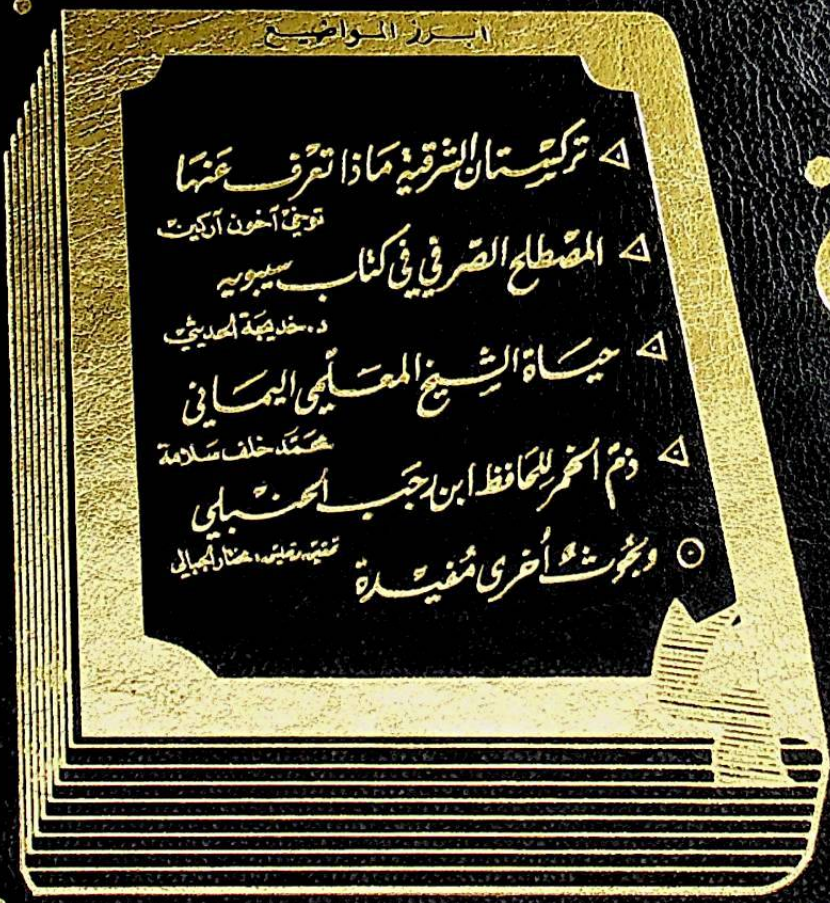 ابرز المواضيع
تركستان الشرقية ماذا تعرف عنها
آخون آركين
المصطلح الصرفي في كتاب سيبويه
د. خديجة الحديثي
حياة الشيخ المعلمي اليماني
محمد خلف سلامة
ذم الخمر للحافظ ابن رجب الحنبلي
تحقيق وتعليق: مختار الجبالي
وبحوث أخرى مفيدة